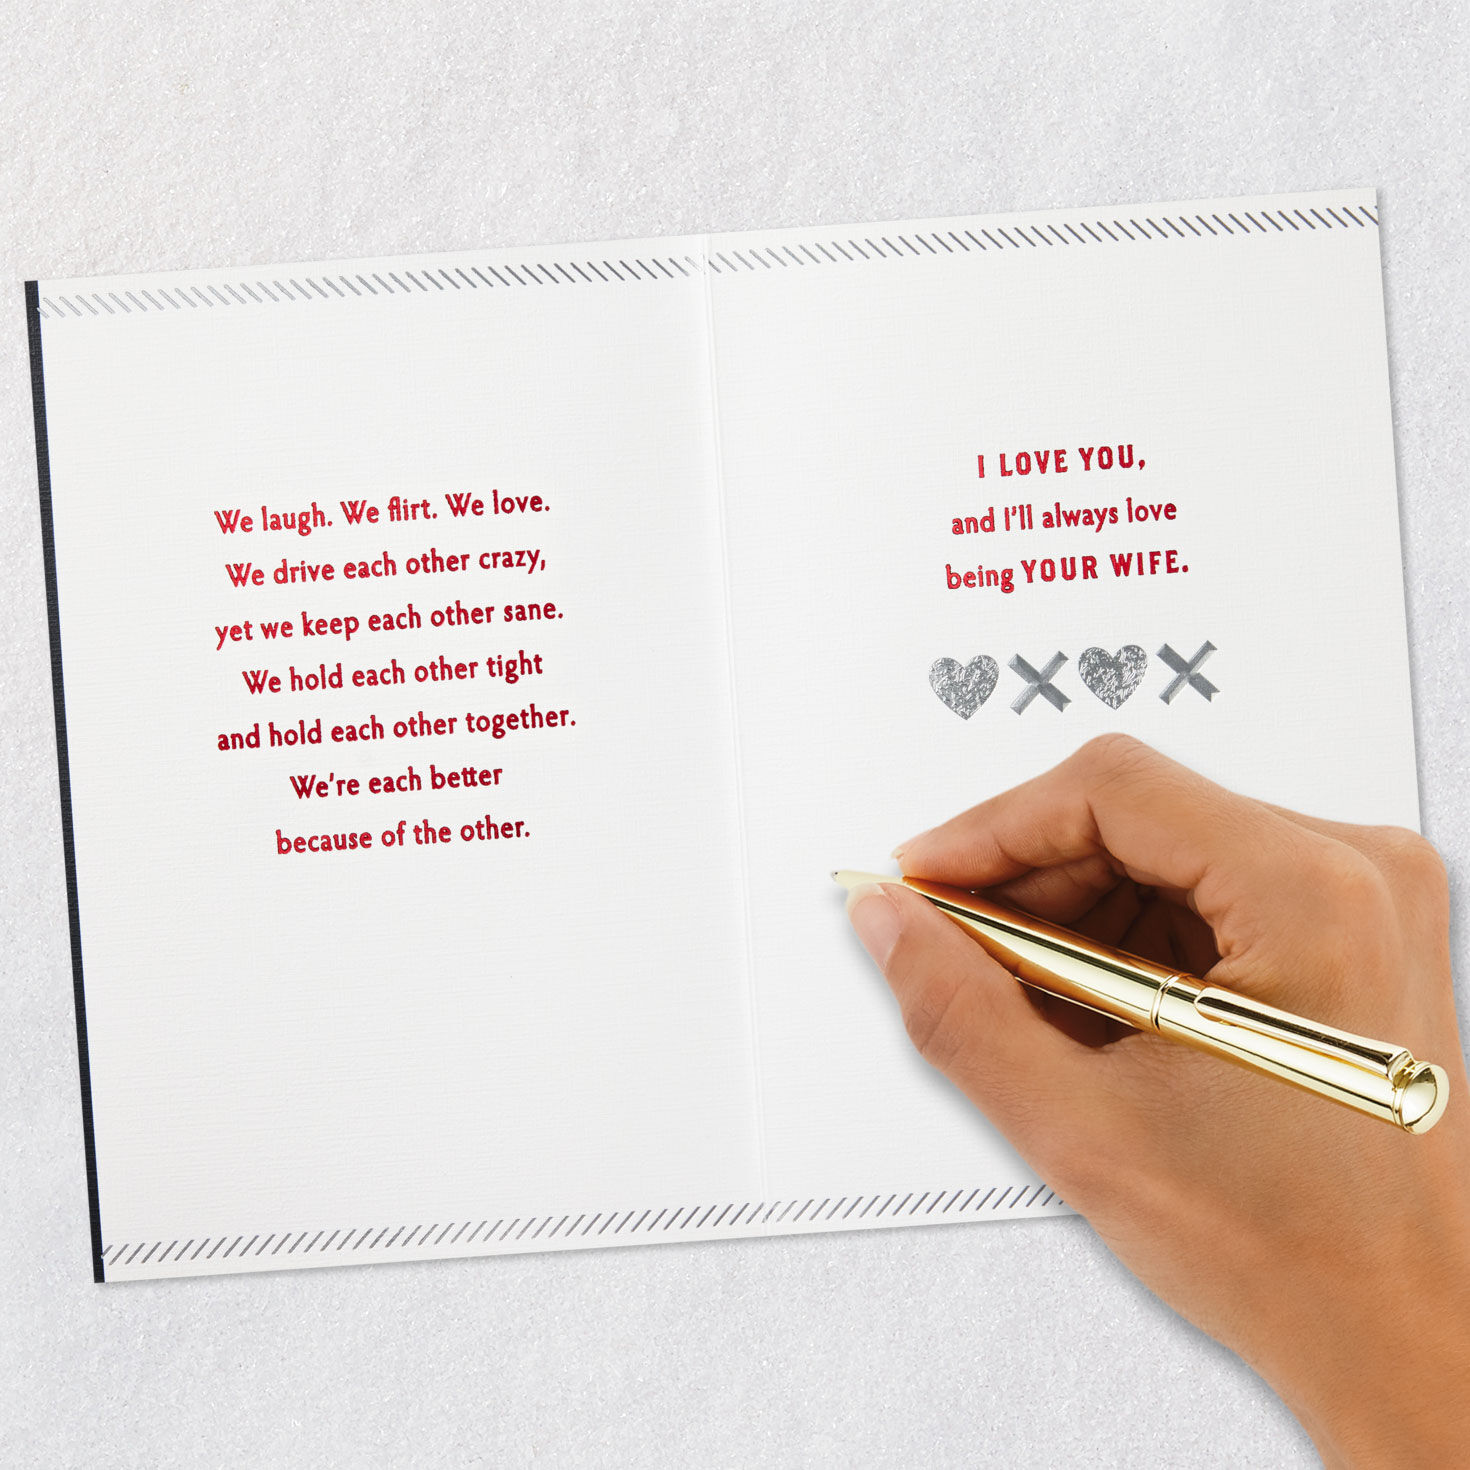 We laugh. We flirt. We love.
We drive each other crazy,
yet we keep each other sane.
We hold each other tight
and hold each other together.
We're each better
because of the other.
I LOVE YOU,
and I'll always love
being YOUR WIFE.